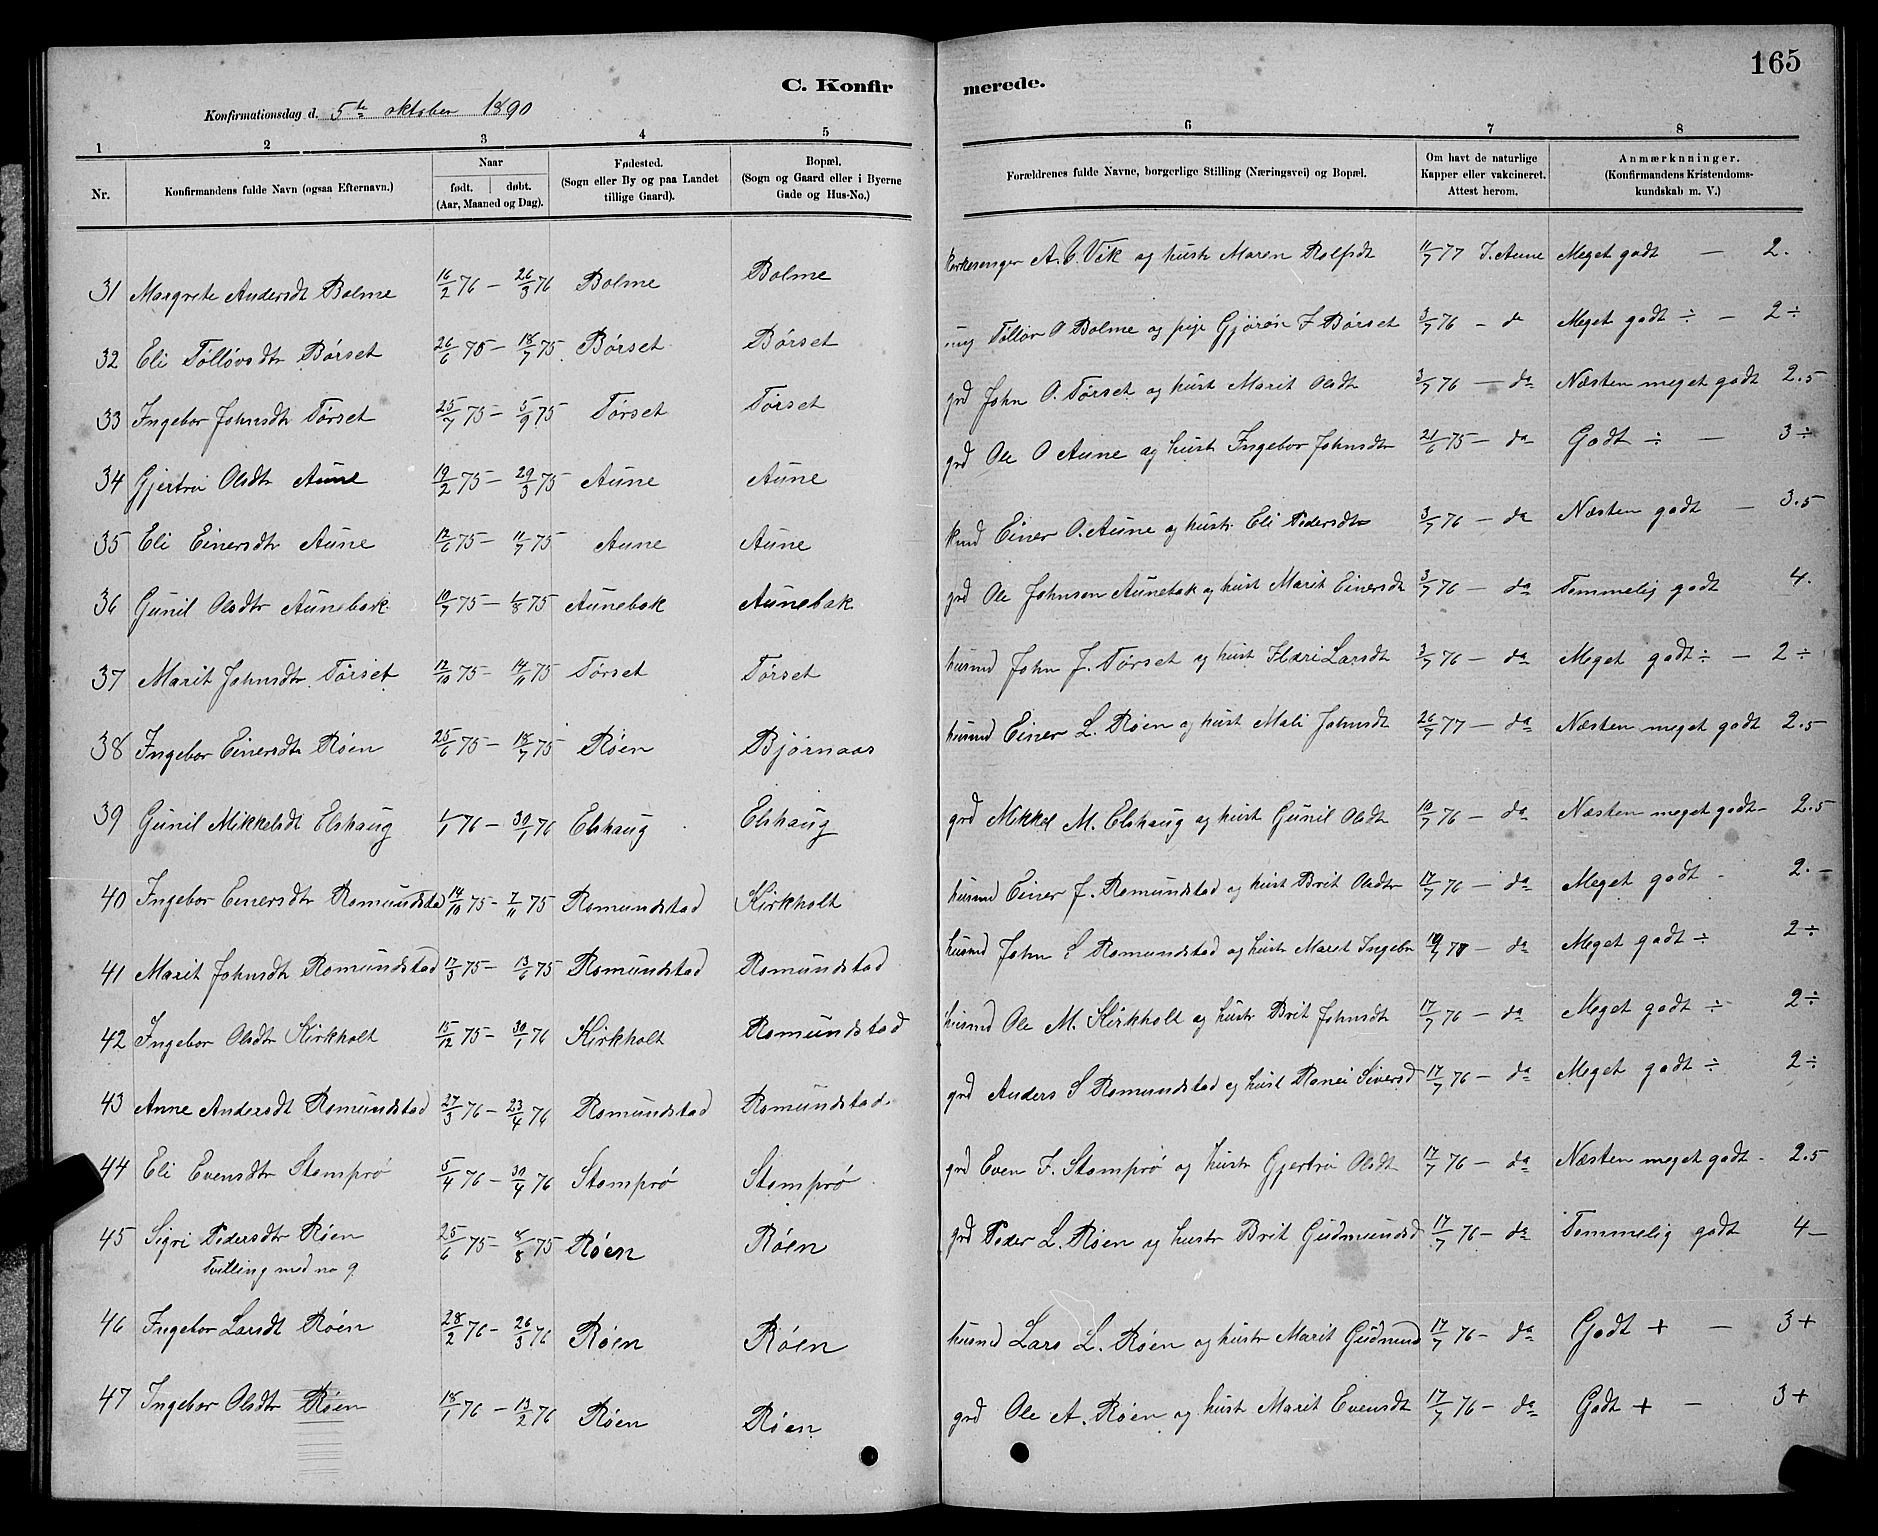 165
C. Konfirmerede.
Konfirmationsdag d. 5te oktober 1890
1 2 3 4 5 6 7 8
Nr.
Konfirmandens fulde Navn (ogsaa Efternavn.)
Naar
født. døbt.
(Aar, Maaned og Dag).
Fødested.
(Sogn eller By og paa Landet
tillige Gaard).
Bopæl.
(Sogn og Gaard eller i Byerne
Gade og Hus-No.)
Forældrenes fulde Navne, borgerlige Stilling (Næringsvei) og Bopæl.
Om havt de naturlige
Kapper eller vakcineret.
Attest herom.
Anmærknninger.
(Konfirmandens Kristendoms-
kundskab m. V.)
31 Margrete Andersdt Bolme 16/2 76 – 26/3 76 Bolme Bolme Kirkesanger A. O. Vik og hustr Maren Rolfsdt 11/7 77 I. Aune Meget godt – 2.
32 Eli Tølløvsdtr Børset 26/6 75 – 18/7 75 Børset Børset ung Tølløv O Bolme og pige Gjørøn I Børset 3/7 76 – da Meget godt ÷ – 2 ÷
33 Ingebor Johnsdtr Tørset 25/7 75 – 5/9 75 Tørset Tørset grd John O. Tørset og hustr Marit Olsdt 3/7 76 – da Næsten meget godt 2.5
34 Gjertrü Olsdtr Aune 19/2 75 – 29/3 75 Aune Aune grd Ole O Aune og hustr Ingebor Johnsdtr 21/6 75 – da Godt ÷ – 3 ÷
35 Eli Einersdtr Aune 12/6 75 – 11/7 75 Aune Aune Einer O. Aune og hustr. Eli Pedersdtr 3/7 76 – da Næsten godt – 3.5
36 Gunil Olsdtr Aunebak 10/7 75 – 1/8 75 Aunebak Aunebak grd Ole Johnsen Aunebak og hustr Marit Einersdt 3/7 76 – da Temmelig godt 4.
37 Marit Johnsdtr Tørset 12/10 75 – 14/11 75 Tørset Tørset husmd John J. Tørset og hustr Kari Larsdt 3/7 76 – da Meget godt ÷ – 2 ÷
38 Ingebor Einersdtr Røen 25/6 75 – 18/7 75 Røen Bjørnaas husmd Einer L. Røen og hustr Mali Johnsdt 26/7 77 – da Næsten meget godt 2.5
39 Gunil Mikkelsdt Elshaug 1/1 76 – 30/1 76 Elshaug Elshaug grd Mikkel M. Elshaug og hustr Gunil Olsdt 10/7 76 – da Næsten meget godt – 2.5
40 Ingebor Einersdtr Romundstad 14/10 75 – 7/11 75 Romundstad Kirkholt husmd Einer J. Romundstad og hustr Brit Olsdtr 17/7 76 – da Meget godt – 2. –
41 Marit Johnsdt Romundstad 17/3 75 – 13/6 75 Romundstad Romundstad husmd John E Romundstad og hustr Marit Ingebr – da Meget godt ÷ 2 ÷
42 Ingebor Olsdtr Kirkholt 15/12 75 – 30/1 76 Kirkholt Romundstad husmd Ole M. Kirkholt og hustr Brit Johnsdt 17/7 76 – da Meget godt ÷ 2 ÷
43 Anne Andersdt Romundstad 27/3 76 – 23/4 76 Romundstad Romundstad. grd Anders S Romundstad og hust Ranei Siversd 17/7 76 – da Meget godt ÷ 2 ÷
44 Eli Evensdtr Stomprø 5/4 76 – 30/4 76 Stomprø Stomprø grd Even F. Stomprø og hustr Gjertrü Olsdt 17/7 76 – da Næsten meget godt – 2.5
45 Sigri Pedersdtr Røen 25/6 75 – 8/8 75 Røen Røen grd Peder L. Røen og hustr Brit Gudmundsd 17/7 76 – da Temmelig godt 4 –
Tvilling med no 9
46 Ingebor Larsdt Røen 28/2 76 – 26/3 76 Røen Røen husmd Lars L. Røen og hustr Marit Gudmund 17/7 76 – da Godt + – 3 +
47 Ingebor Olsdtr Røen 18/1 76 – 13/2 76 Røen Røen grd Ole A. Røen og hustr Marit Evensdt 17/7 76 – da Godt + – 3 +